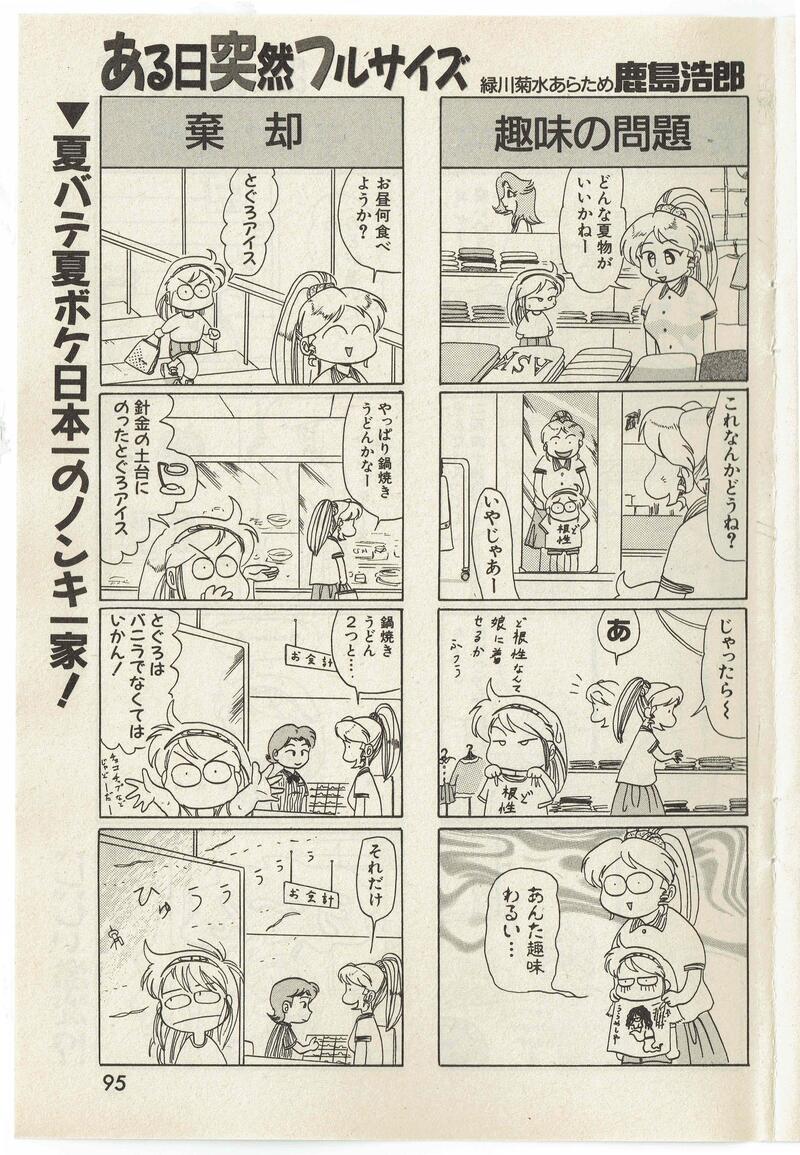 ある日突然フルサイズ
緑川菊水あらため鹿島浩郎
▼夏バテ夏ボケ日本一のノンキ一家!
趣味の問題
どんな夏物が
いいかねー
これなんかどうね?
ど
根性
いやじゃあー
じゃったら〜
あ
ど根性なんて
娘に着
せるか
ふつう
ど
根性
あんた趣味
わるい…
うらめしや
棄却
お昼何食べ
ようか?
とぐろアイス
やっぱり鍋焼き
うどんかなー
針金の土台に
のったとぐろアイス
鍋焼き
うどん
2つと…‥
お会計
とぐろは
バニラでなくては
いかん!
それだけ
お会計
ひゅううううう
95